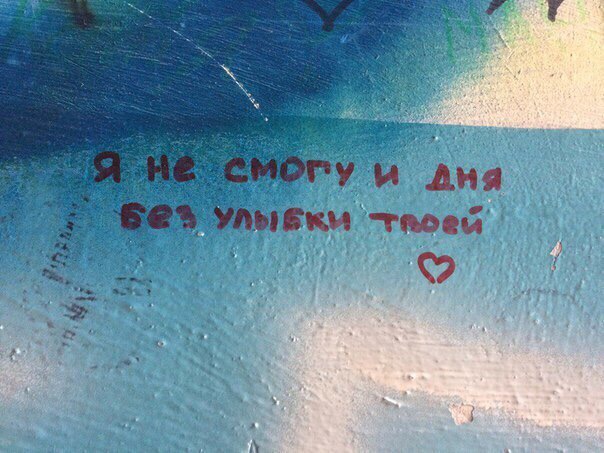 Я не смогу и дня
без улыбки твоей